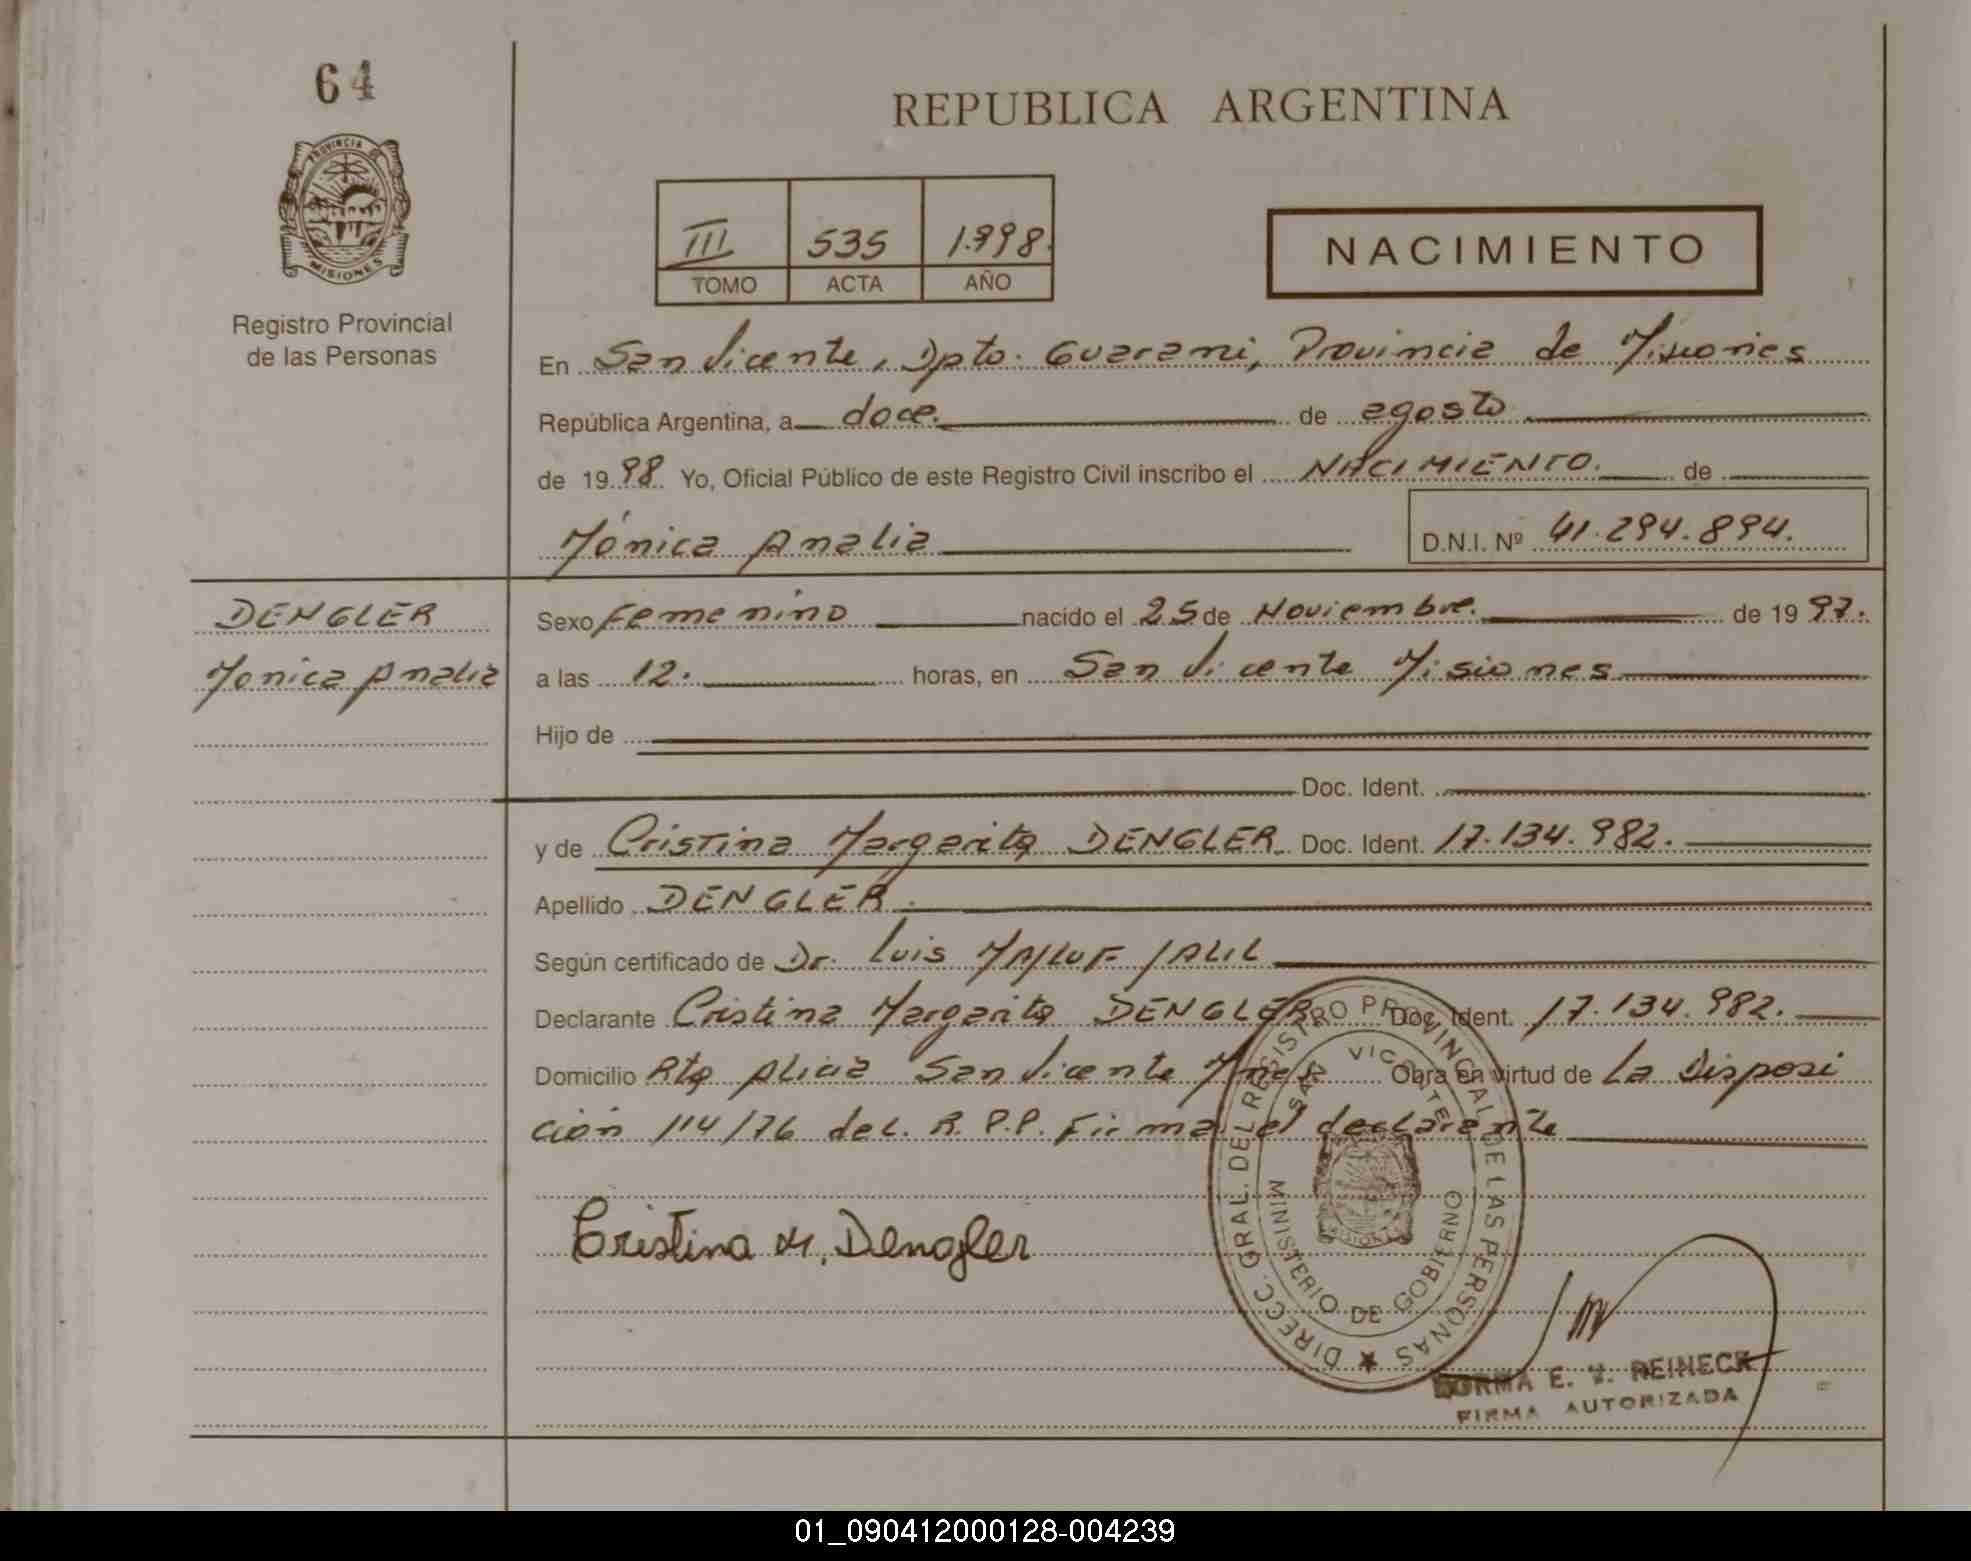 64
REPUBLICA ARGENTINA
PROVINCIA DE
MISIONES
III 535 1.998.
TOMO ACTA AÑO
NACIMIENTO
Registro Provincial
de las Personas
En San Vicente, Dpto. Guarani, Provincia de Misiones
República Argentina, a doce. de agosto
de 1998. Yo, Oficial Público de este Registro Civil inscribo el NACIMIENTO. de
Mónica Analia
D.N.I. Nº 41.294.894.
DENGLER
Monica Analia
Sexo Femenino nacido el 25 de Noviembre. de 1997.
a las 12. horas, en San Vicente Misiones
Hijo de
Doc. Ident.
y de Cristina Margarita DENGLER Doc. Ident. 17.134.982.
Apellido DENGLER.
Según certificado de Dr. Luis JALIL
Declarante Cristina Margarita DENGLER Doc. Ident. 17.134.982.
Domicilio Rta Alicia San Vicente Mnes Obra en virtud de La Disposi
ción 114/76 del. R.P.P. Firma el declarante
Cristina M. Dengler
DIRECC. GRAL. DEL REGISTRO PROVINCIAL DE LAS PERSONAS
SAN VICENTE
MINISTERIO DE GOBIERNO
MISIONES
NORMA E. V. REINECK
FIRMA AUTORIZADA
01_090412000128-004239